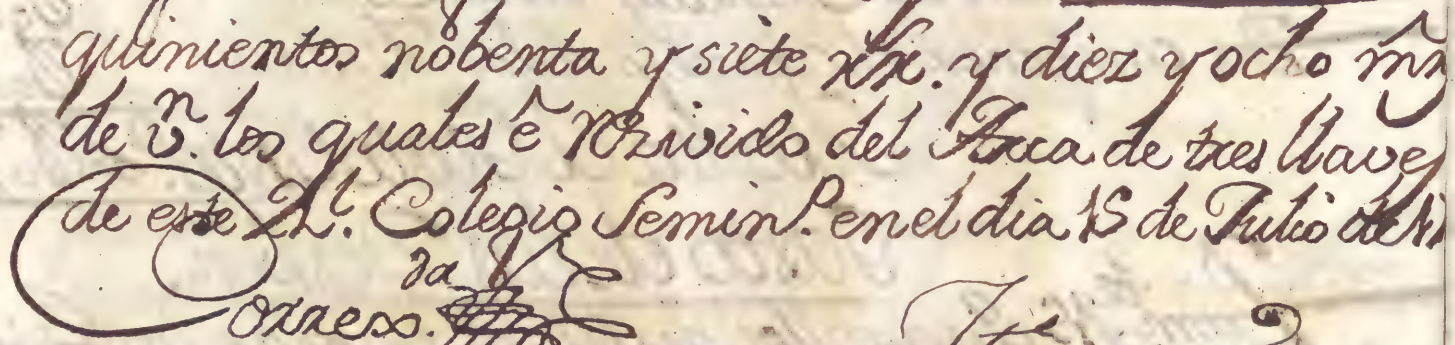 quinientos nobenta y siete rrs. y diez y ocho mrs
de vn. los quales é rrezivido del Arca de tres llaves
de este Rl. Colegio Seminro. en el dia 15 de Julio de
da
Corress.